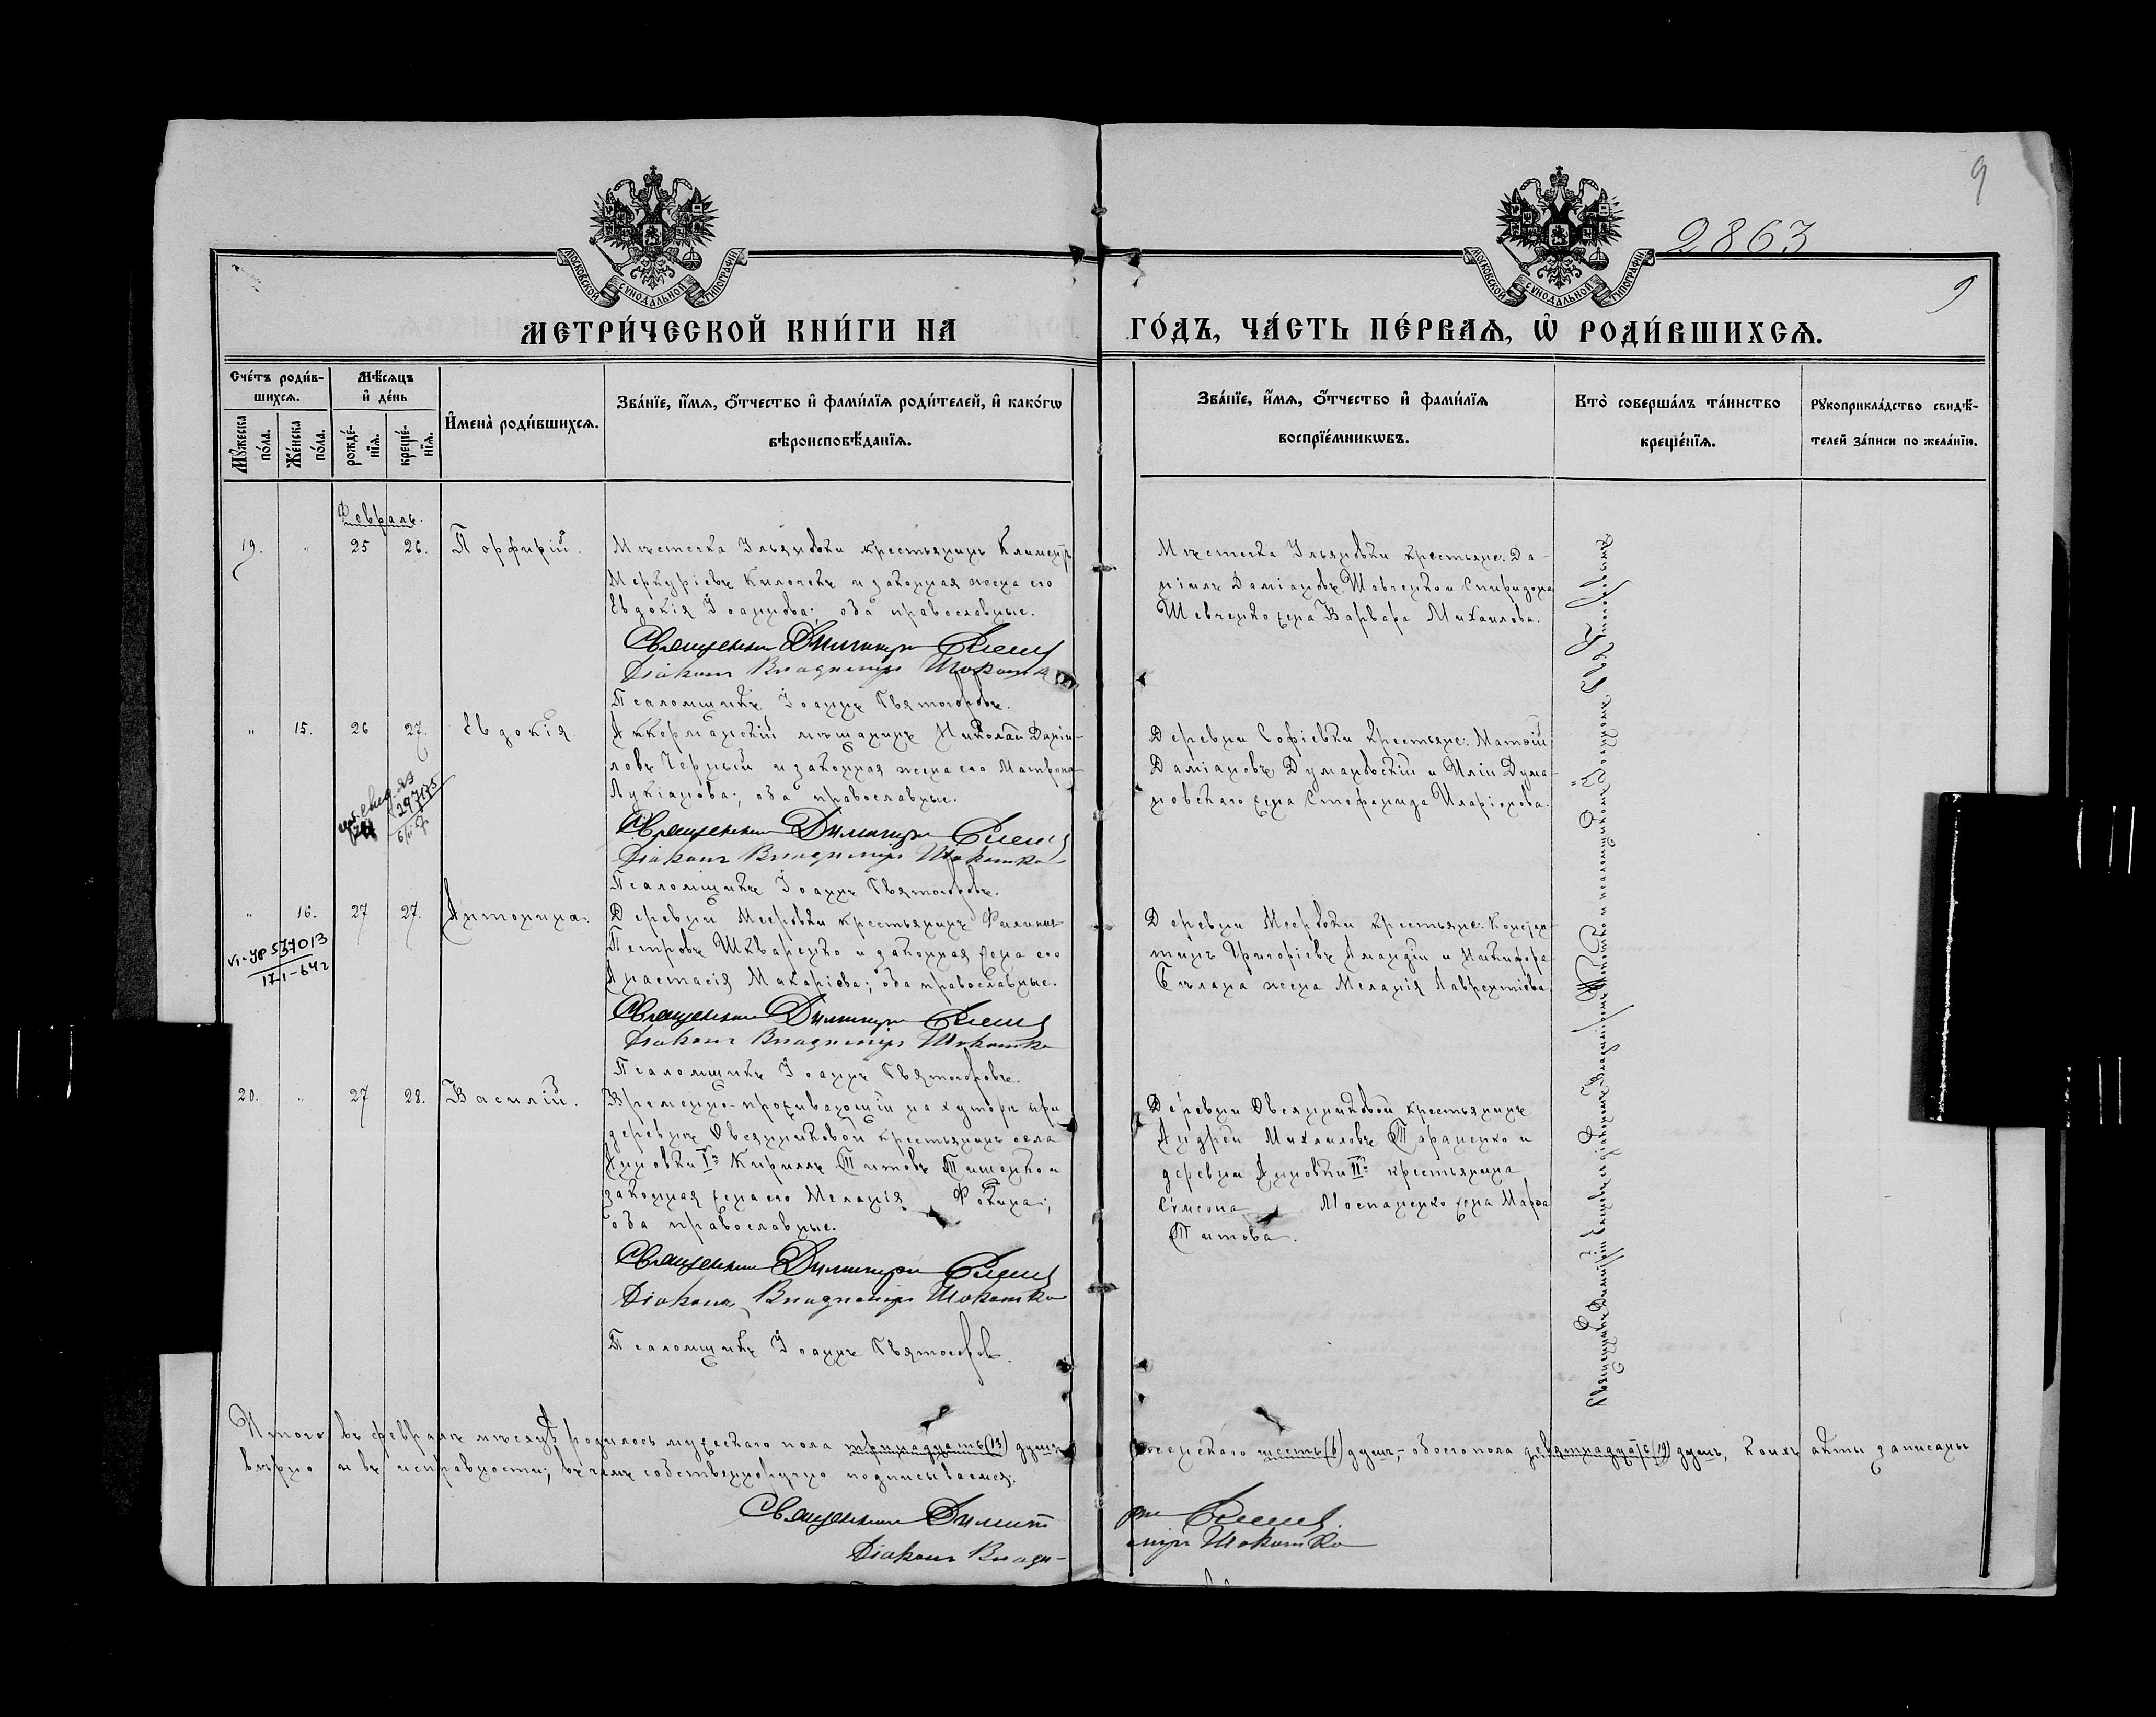 9
2863
9
МОСКОВСКОЙ СУНОДАЛЬНОЙ ТИПОГРАФИИ
МОСКОВСКОЙ СУНОДАЛЬНОЙ ТИПОГРАФИИ
МЕТРИ́ЧЕСКОЙ КНИ́ГИ НА
ГО́ДЪ, ЧА́СТЬ ПЕ́РВАѦ, Ѡ҆ РОДИ́ВШИХСѦ.
Сче́тъ роди́в-
шихсѧ.
Мꙋжеска по́ла.
Же́нска по́ла.
Мѣ́сѧцъ и҆ де́нь
рожде́-нїѧ.
креще́-нїѧ.
И҆мена̀ роди́вшихсѧ.
Зва́нїе, и҆́мѧ, ѻ҆́тчество и҆ фами́лїѧ роди́телей, и҆ како́гѡ
вѣроисповѣ́данїѧ.
Зва́нїе, и҆́мѧ, ѻ҆́тчество и҆ фами́лїѧ
воспрїе́мникѡвъ.
Кто̀ соверша́лъ та́инство
креще́нїѧ.
Рꙋкоприкла́дство свидѣ́-
телей за́писи по жела́нїю.
Февраль.
19. " 25 26. Порфирій.
Мѣстечка Ульяновки крестьянинъ Климентъ
Меркуріевъ Килочекъ и законная жена его
Евдокія Іоаннова; оба православные.
Священникъ Димитрій
Діаконъ Владиміръ Шокотко
Псаломщикъ Іоаннъ Святогоровъ.
Мѣстечка Ульяновки крестьяне: Да-
ніилъ Даміановъ Шевченко и Спиридона
Шевченко жена Варвара Михаилова.
" 15. 26 27. Евдокія
Аккерманскій мѣщанинъ Николай Даніи-
ловъ Черный и законная жена его Матрона
Лукіанова; оба православные.
Священникъ Димитрій
Діаконъ Владиміръ Шокотко
Псаломщикъ Іоаннъ Святогоровъ.
Деревни Софіевки крестьяне: Матѳій
Даміановъ Думановскій и Иліи Дума-
новскаго жена Стефанида Иларіонова.
" 16. 27 27. Антонина.
VI-УР 537013
17/I-64г
Деревни Мееровки крестьянинъ Филиппъ
Петровъ Шкваренко и законная жена его
Анастасія Макаріева; оба православные.
Священникъ Димитрій
Діаконъ Владиміръ Шокотко
Псаломщикъ Іоаннъ Святогоровъ.
Деревни Мееровки крестьяне: Констан-
тинъ Григоріевъ и Никифора
Бѣлана жена Меланія Лаврентіева.
20. " 27 28. Василій.
Временно-проживающій на хуторѣ при
деревнѣ Овсянниковой крестьянинъ села
Анновки Iй Кириллъ Титовъ Тищенко и
законная жена его Меланія Фокина;
оба православные.
Священникъ Димитрій
Діаконъ Владиміръ Шокотко
Псаломщикъ Іоаннъ Святогоровъ.
Деревни Овсянниковой крестьянинъ
Андрей Михаиловъ Тараненко и
деревни Анновки IIй крестьянина
Сѵмеона Моспаненко жена Марѳа
Титова.
Священникъ Димитрій съ діакономъ Владиміромъ Шокотко и псаломщикомъ Іоанномъ Святогоровымъ
Итого въ февралѣ мѣсяцѣ родилось мужескаго пола тринадцать (13) душъ, женскаго шесть (6) душъ, – обоего пола девятнадцать (19) душъ, коихъ акты записаны
вѣрно и въ исправности; въ чемъ собственноручно подписываемся:
Священникъ Димитрій
Діаконъ Владиміръ Шокотко